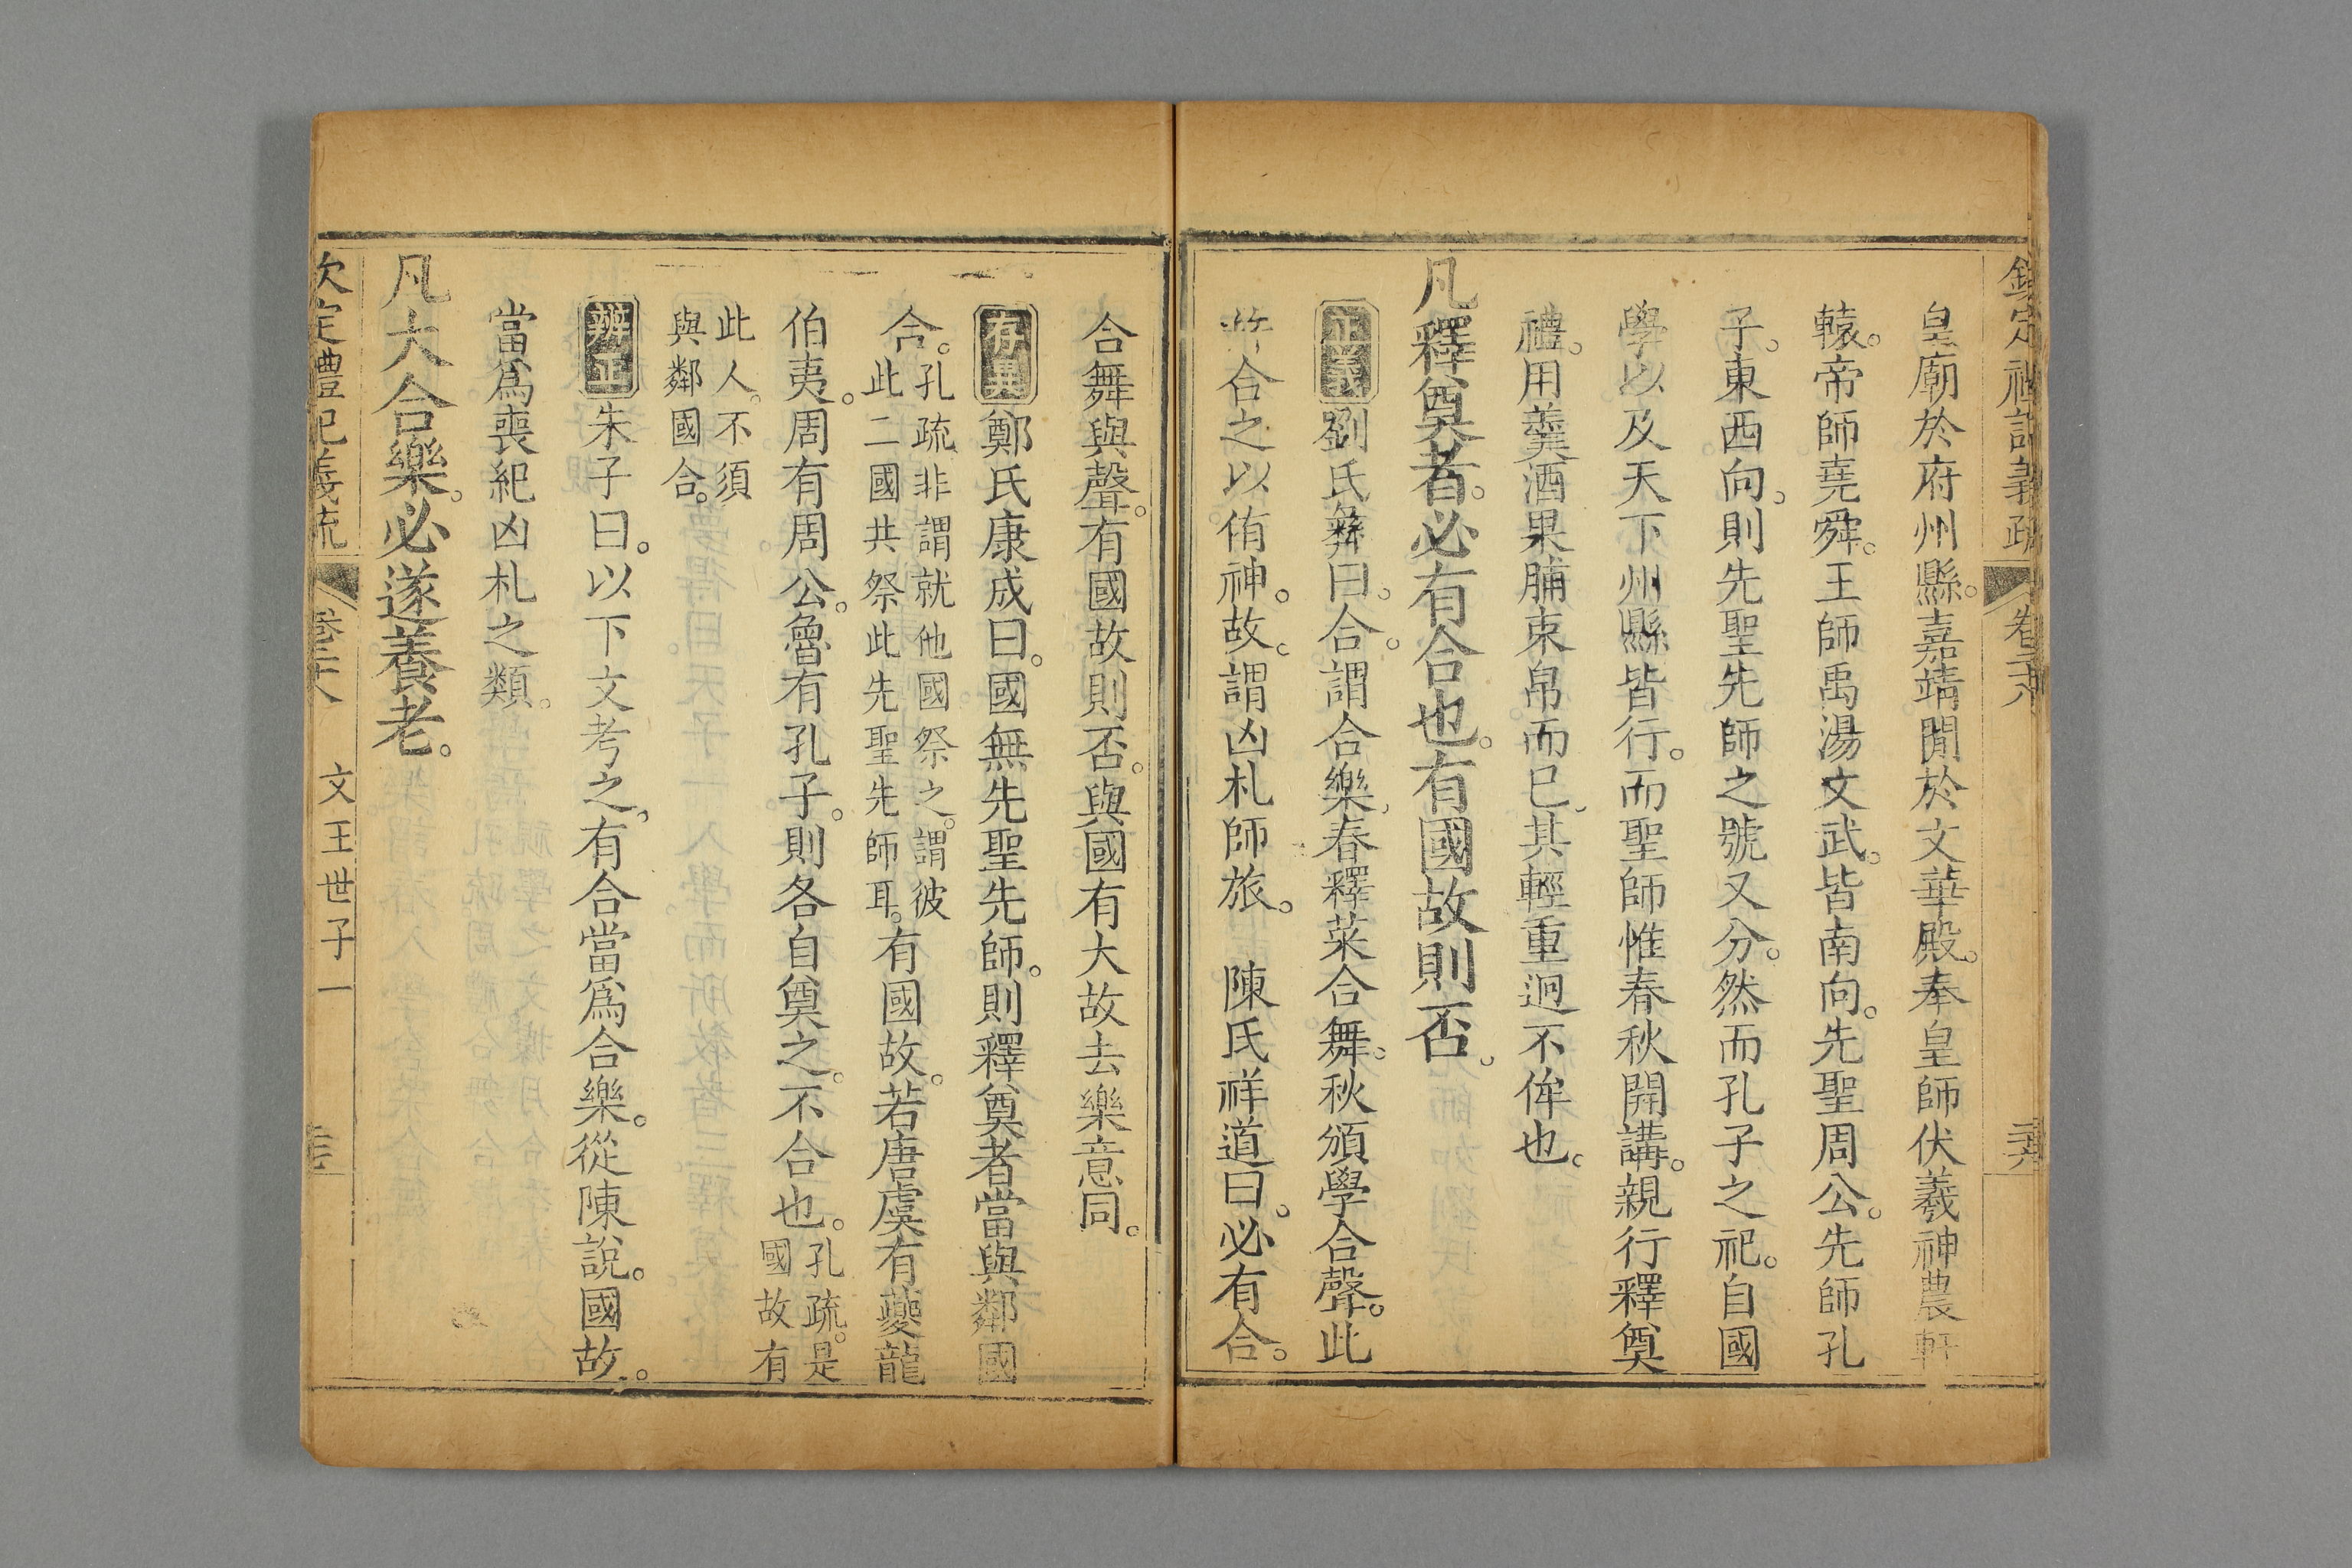 皇廟於府州縣。嘉靖閒於文華殿。奉皇師伏羲神農軒
轅。帝師堯舜。王師禹湯文武。皆南向。先聖周公。先師孔
子。東西向。則先聖先師之號又分。然而孔子之祀。自國
學以及天下州縣皆行。而聖師惟春秋開講。親行釋奠
禮。用羹酒果脯束帛而已。其輕重迥不侔也。
凡釋奠者。必有合也。有國故則否。
正義劉氏彝曰。合。謂合樂。春釋菜合舞。秋頒學合聲。此
合之以侑神。故。謂凶札師旅。 陳氏祥道曰。必有合。
合舞與聲。有國故則否。與國有大故去樂意同。
存異鄭氏康成曰。國無先聖先師。則釋奠者當與鄰國
合。孔疏。非謂就他國祭之。謂彼此二國共祭此先聖先師耳。有國故。若唐虞有夔龍
伯夷。周有周公。魯有孔子。則各自奠之。不合也。孔疏。是國故有
此人。不須與鄰國合。
辨正朱子曰。以下文考之。有合當為合樂。從陳說。國故。
當為喪紀凶札之類。
凡大合樂。必遂養老。
欽定禮記義疏 卷二十八 文王世子一